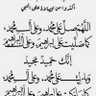 اللهم صل على محمد وعلى آل محمد
كما صليت على إبراهيم وعلى آل إبراهيم
إنك حميد مجيد
اللهم بارك على محمد وعلى آل محمد
كما باركت على إبراهيم وعلى آل إبراهيم